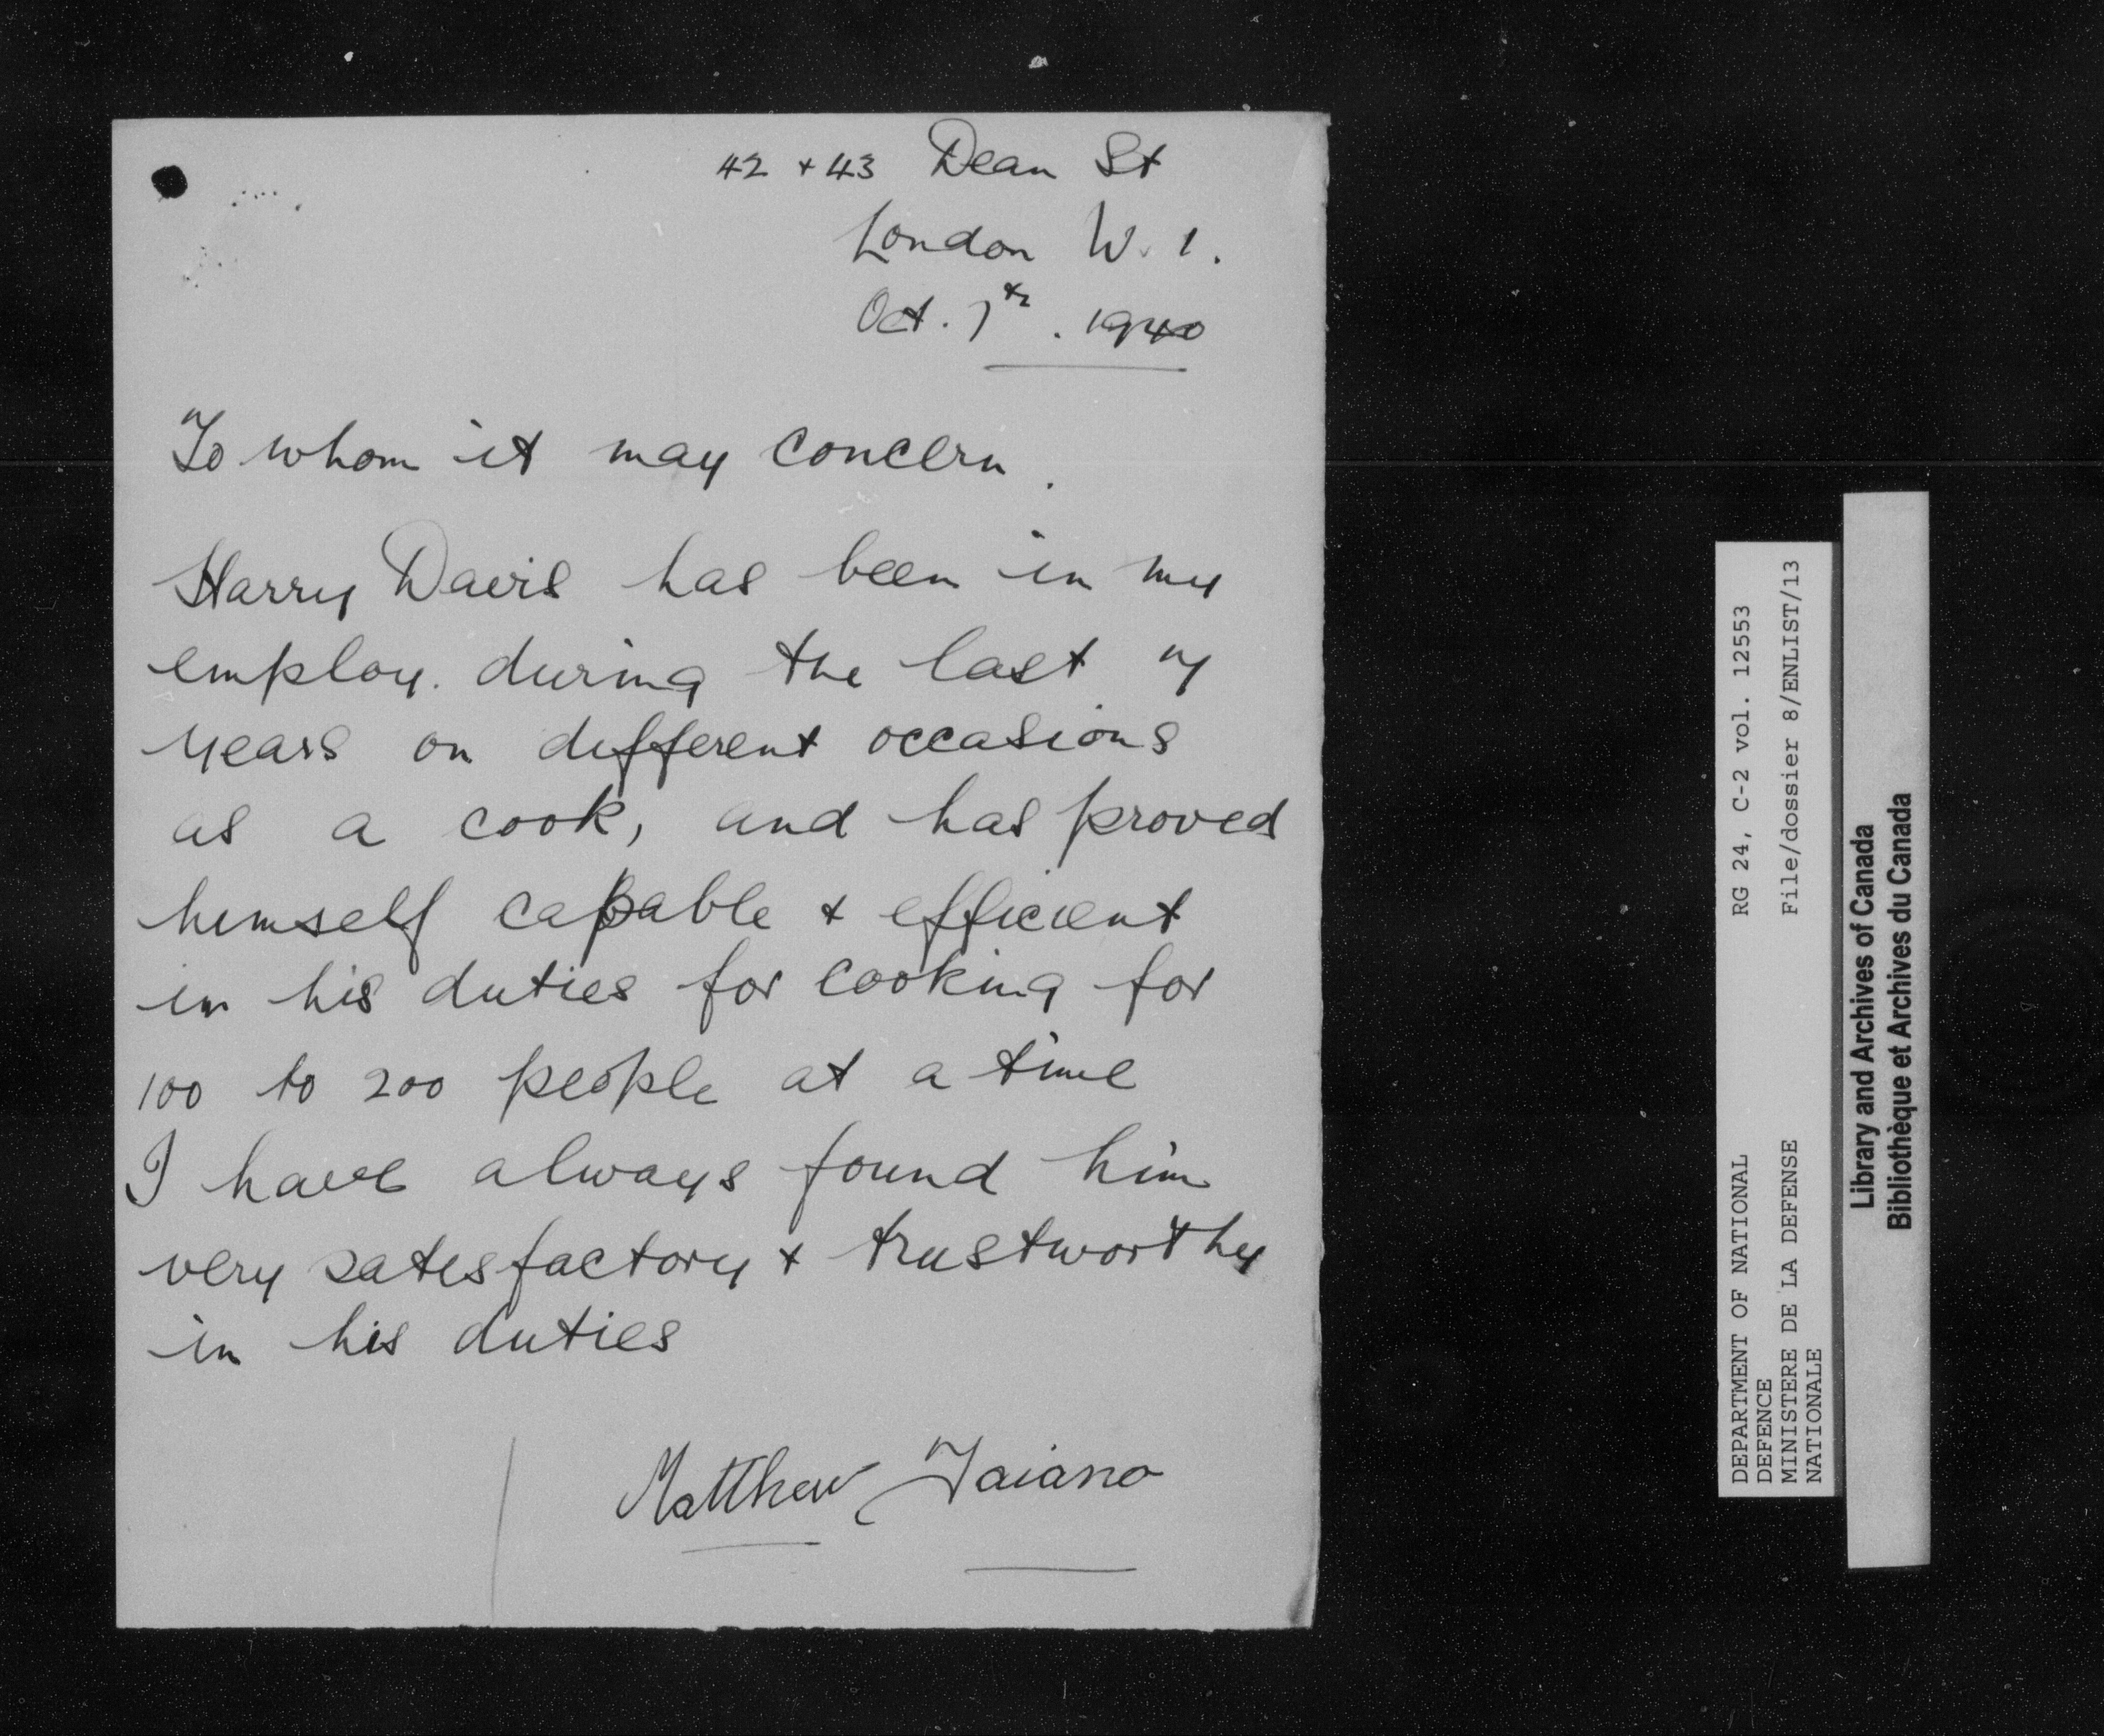 42 + 43 Dean St
London W. 1.
Oct. 7th. 1940
To whom it may concern.
Harry Davis has been in my
employ. during the last 7
years on different occasions
as a cook, and has proved
himself capable & efficient
in his duties for cooking for
100 to 200 people at a time
I have always found him
very satisfactory & trustworthy
in his duties
Matthew Taiano
RG 24, C-2 vol. 12553
File/dossier 8/ENLIST/13
DEPARTMENT OF NATIONAL
DEFENCE
MINISTERE DE LA DEFENSE
NATIONALE
Library and Archives of Canada
Bibliothèque et Archives du Canada